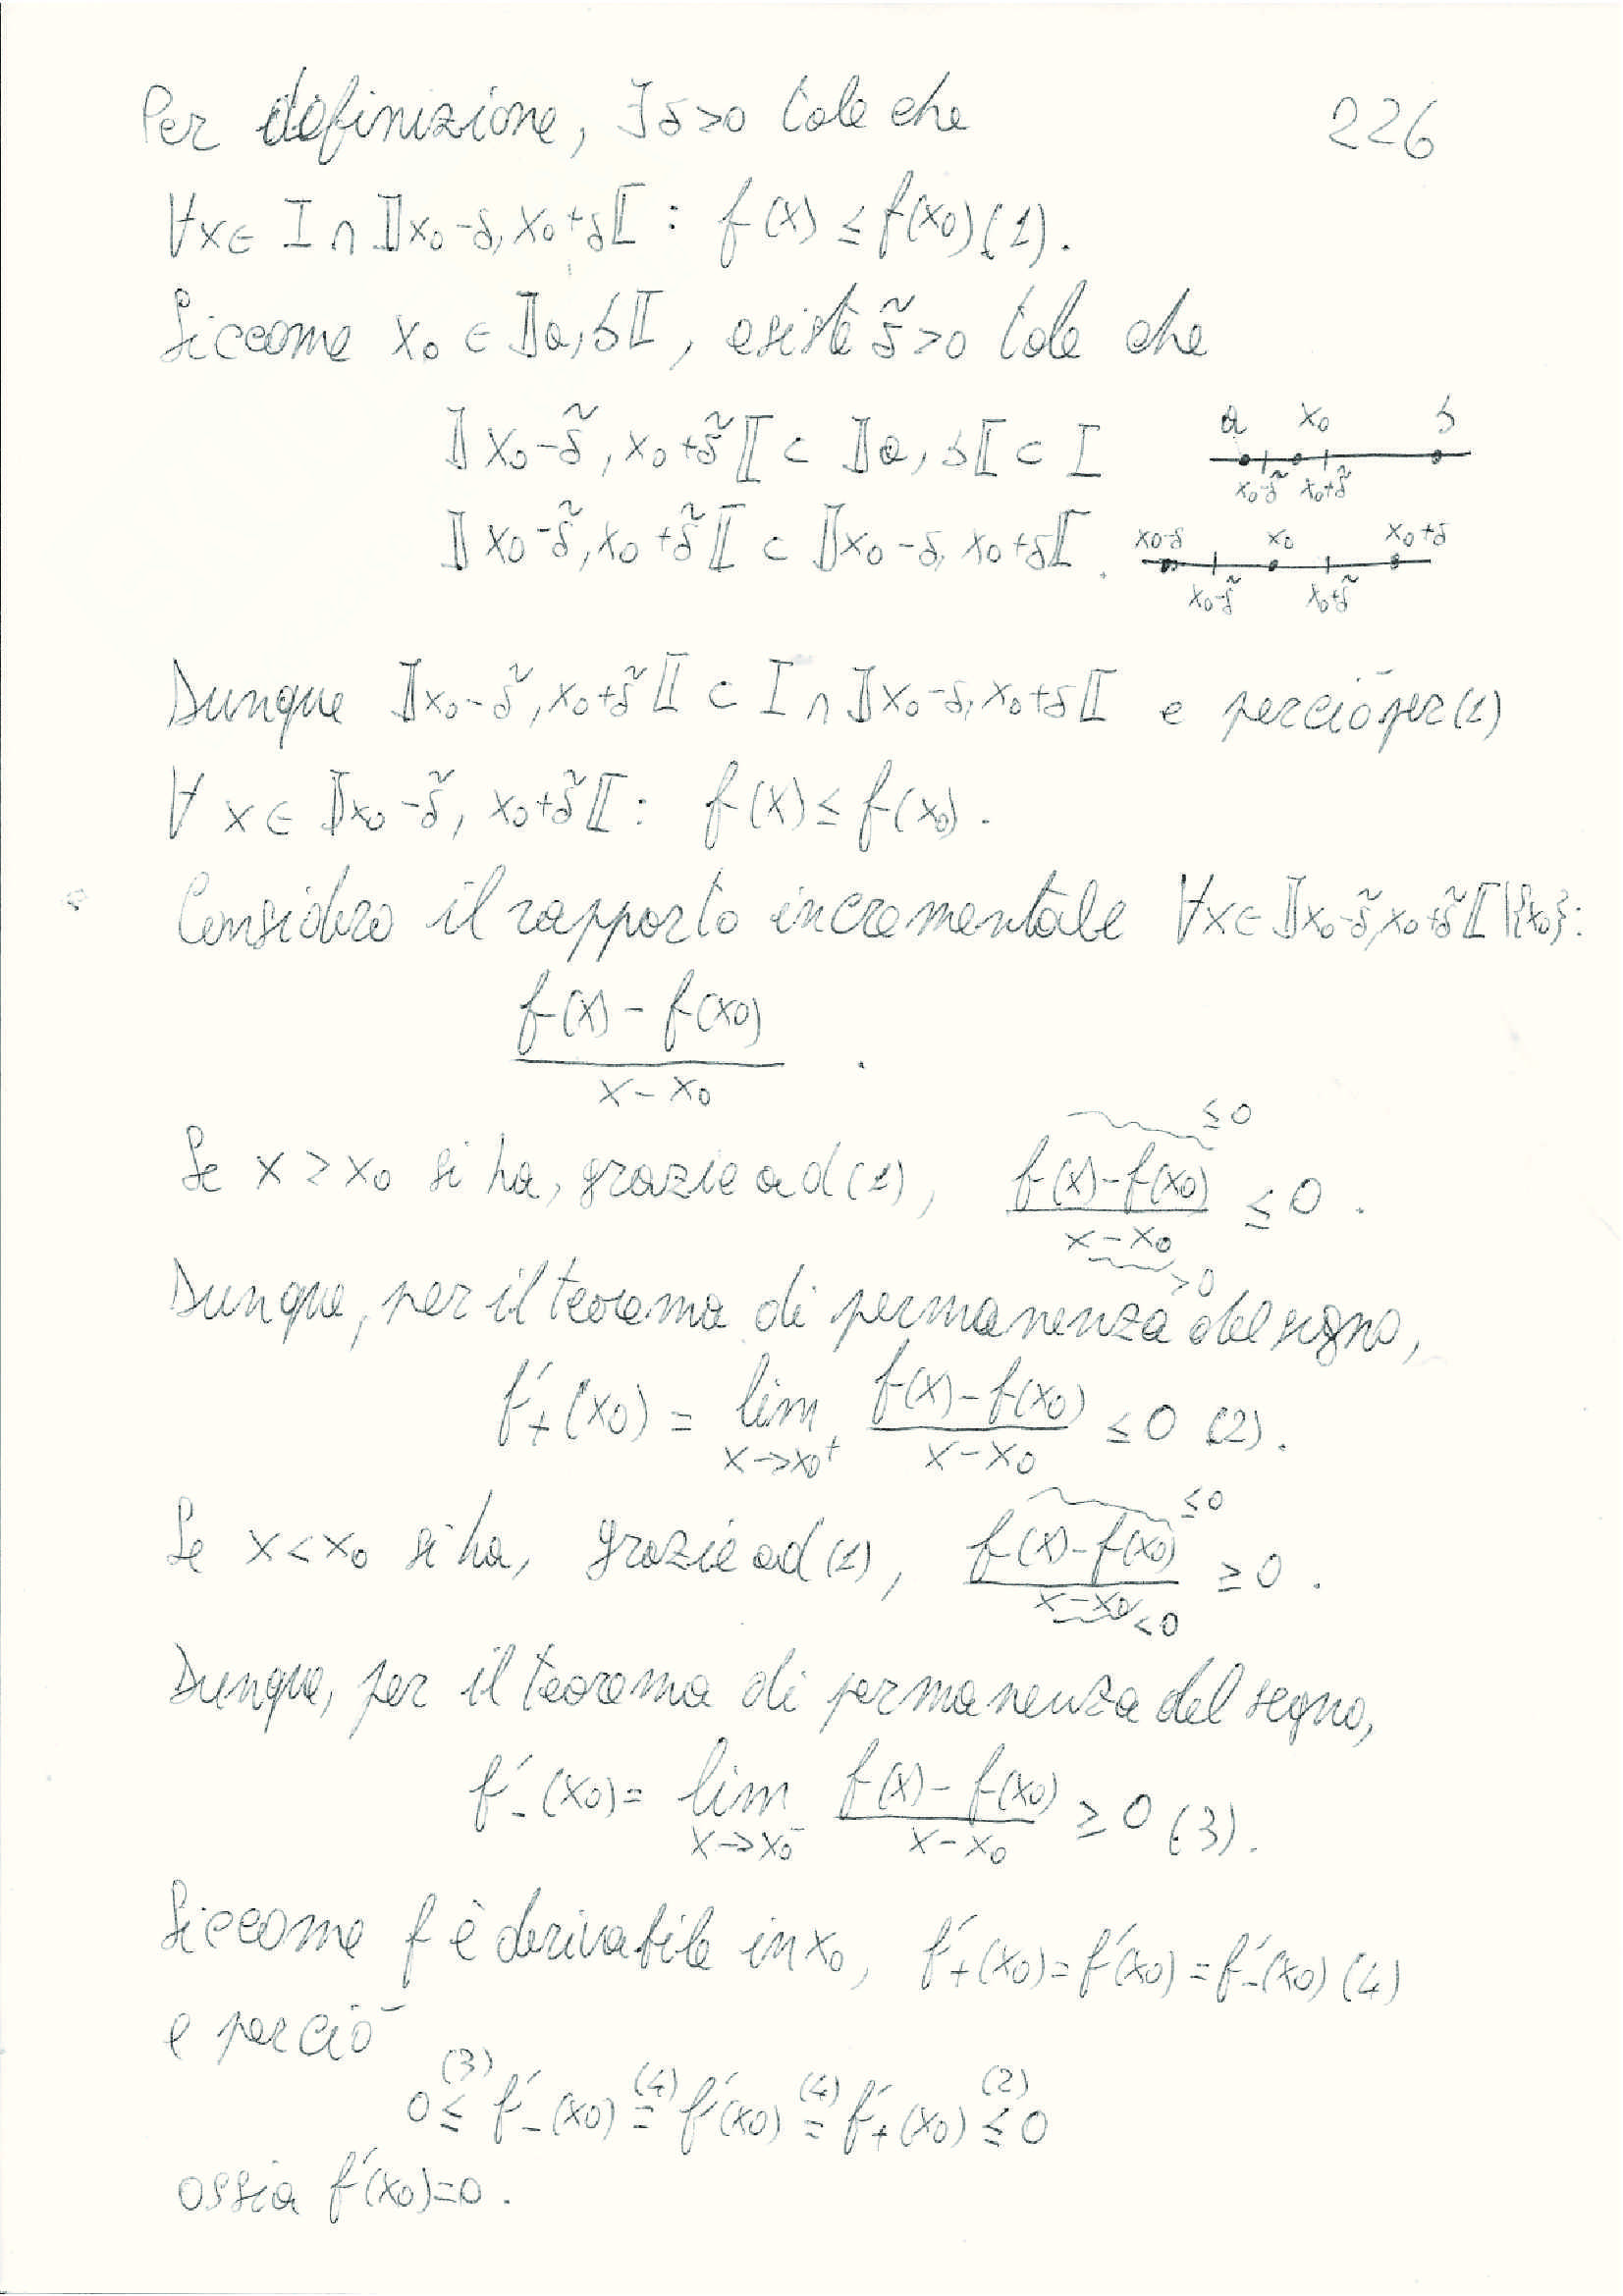 Per definizione, ∃δ>0 tale che
226
∀x∈ I ∩ ]]x₀-δ, x₀+δ[[ : f(x) ≤ f(x₀) (1).
Siccome x₀ ∈ ]]a,b[[, esiste δ̃>0 tale che
]]x₀-δ̃, x₀+δ̃[[ ⊂ ]]a, b[[ ⊂ I
a x₀ b
x₀-δ̃ x₀+δ̃
]]x₀-δ̃, x₀+δ̃[[ ⊂ ]]x₀-δ, x₀+δ[[.
x₀-δ x₀ x₀+δ
x₀-δ̃ x₀+δ̃
Dunque ]]x₀-δ̃, x₀+δ̃[[ ⊂ I ∩ ]]x₀-δ, x₀+δ[[ e perciò per (1)
∀ x∈ ]]x₀-δ̃, x₀+δ̃[[ : f(x) ≤ f(x₀).
Considero il rapporto incrementale ∀x∈ ]]x₀-δ̃, x₀+δ̃[[ \{x₀}:
f(x) - f(x₀)
x - x₀ .
≤0
Se x > x₀ si ha, grazie ad (1), f(x)-f(x₀) / x-x₀ ≤ 0 .
>0
Dunque, per il teorema di permanenza del segno,
f'₊(x₀) = lim x→x₀⁺ f(x)-f(x₀) / x-x₀ ≤ 0 (2).
≤0
Se x<x₀ si ha, grazie ad (1), f(x)-f(x₀) / x-x₀ ≥ 0 .
<0
Dunque, per il teorema di permanenza del segno,
f'₋(x₀) = lim x→x₀⁻ f(x)-f(x₀) / x-x₀ ≥ 0 (3).
Siccome f è derivabile in x₀, f'₊(x₀) = f'(x₀) = f'₋(x₀) (4)
e perciò
(3) (4) (4) (2)
0 ≤ f'₋(x₀) = f'(x₀) = f'₊(x₀) ≤ 0
ossia f'(x₀)=0 .